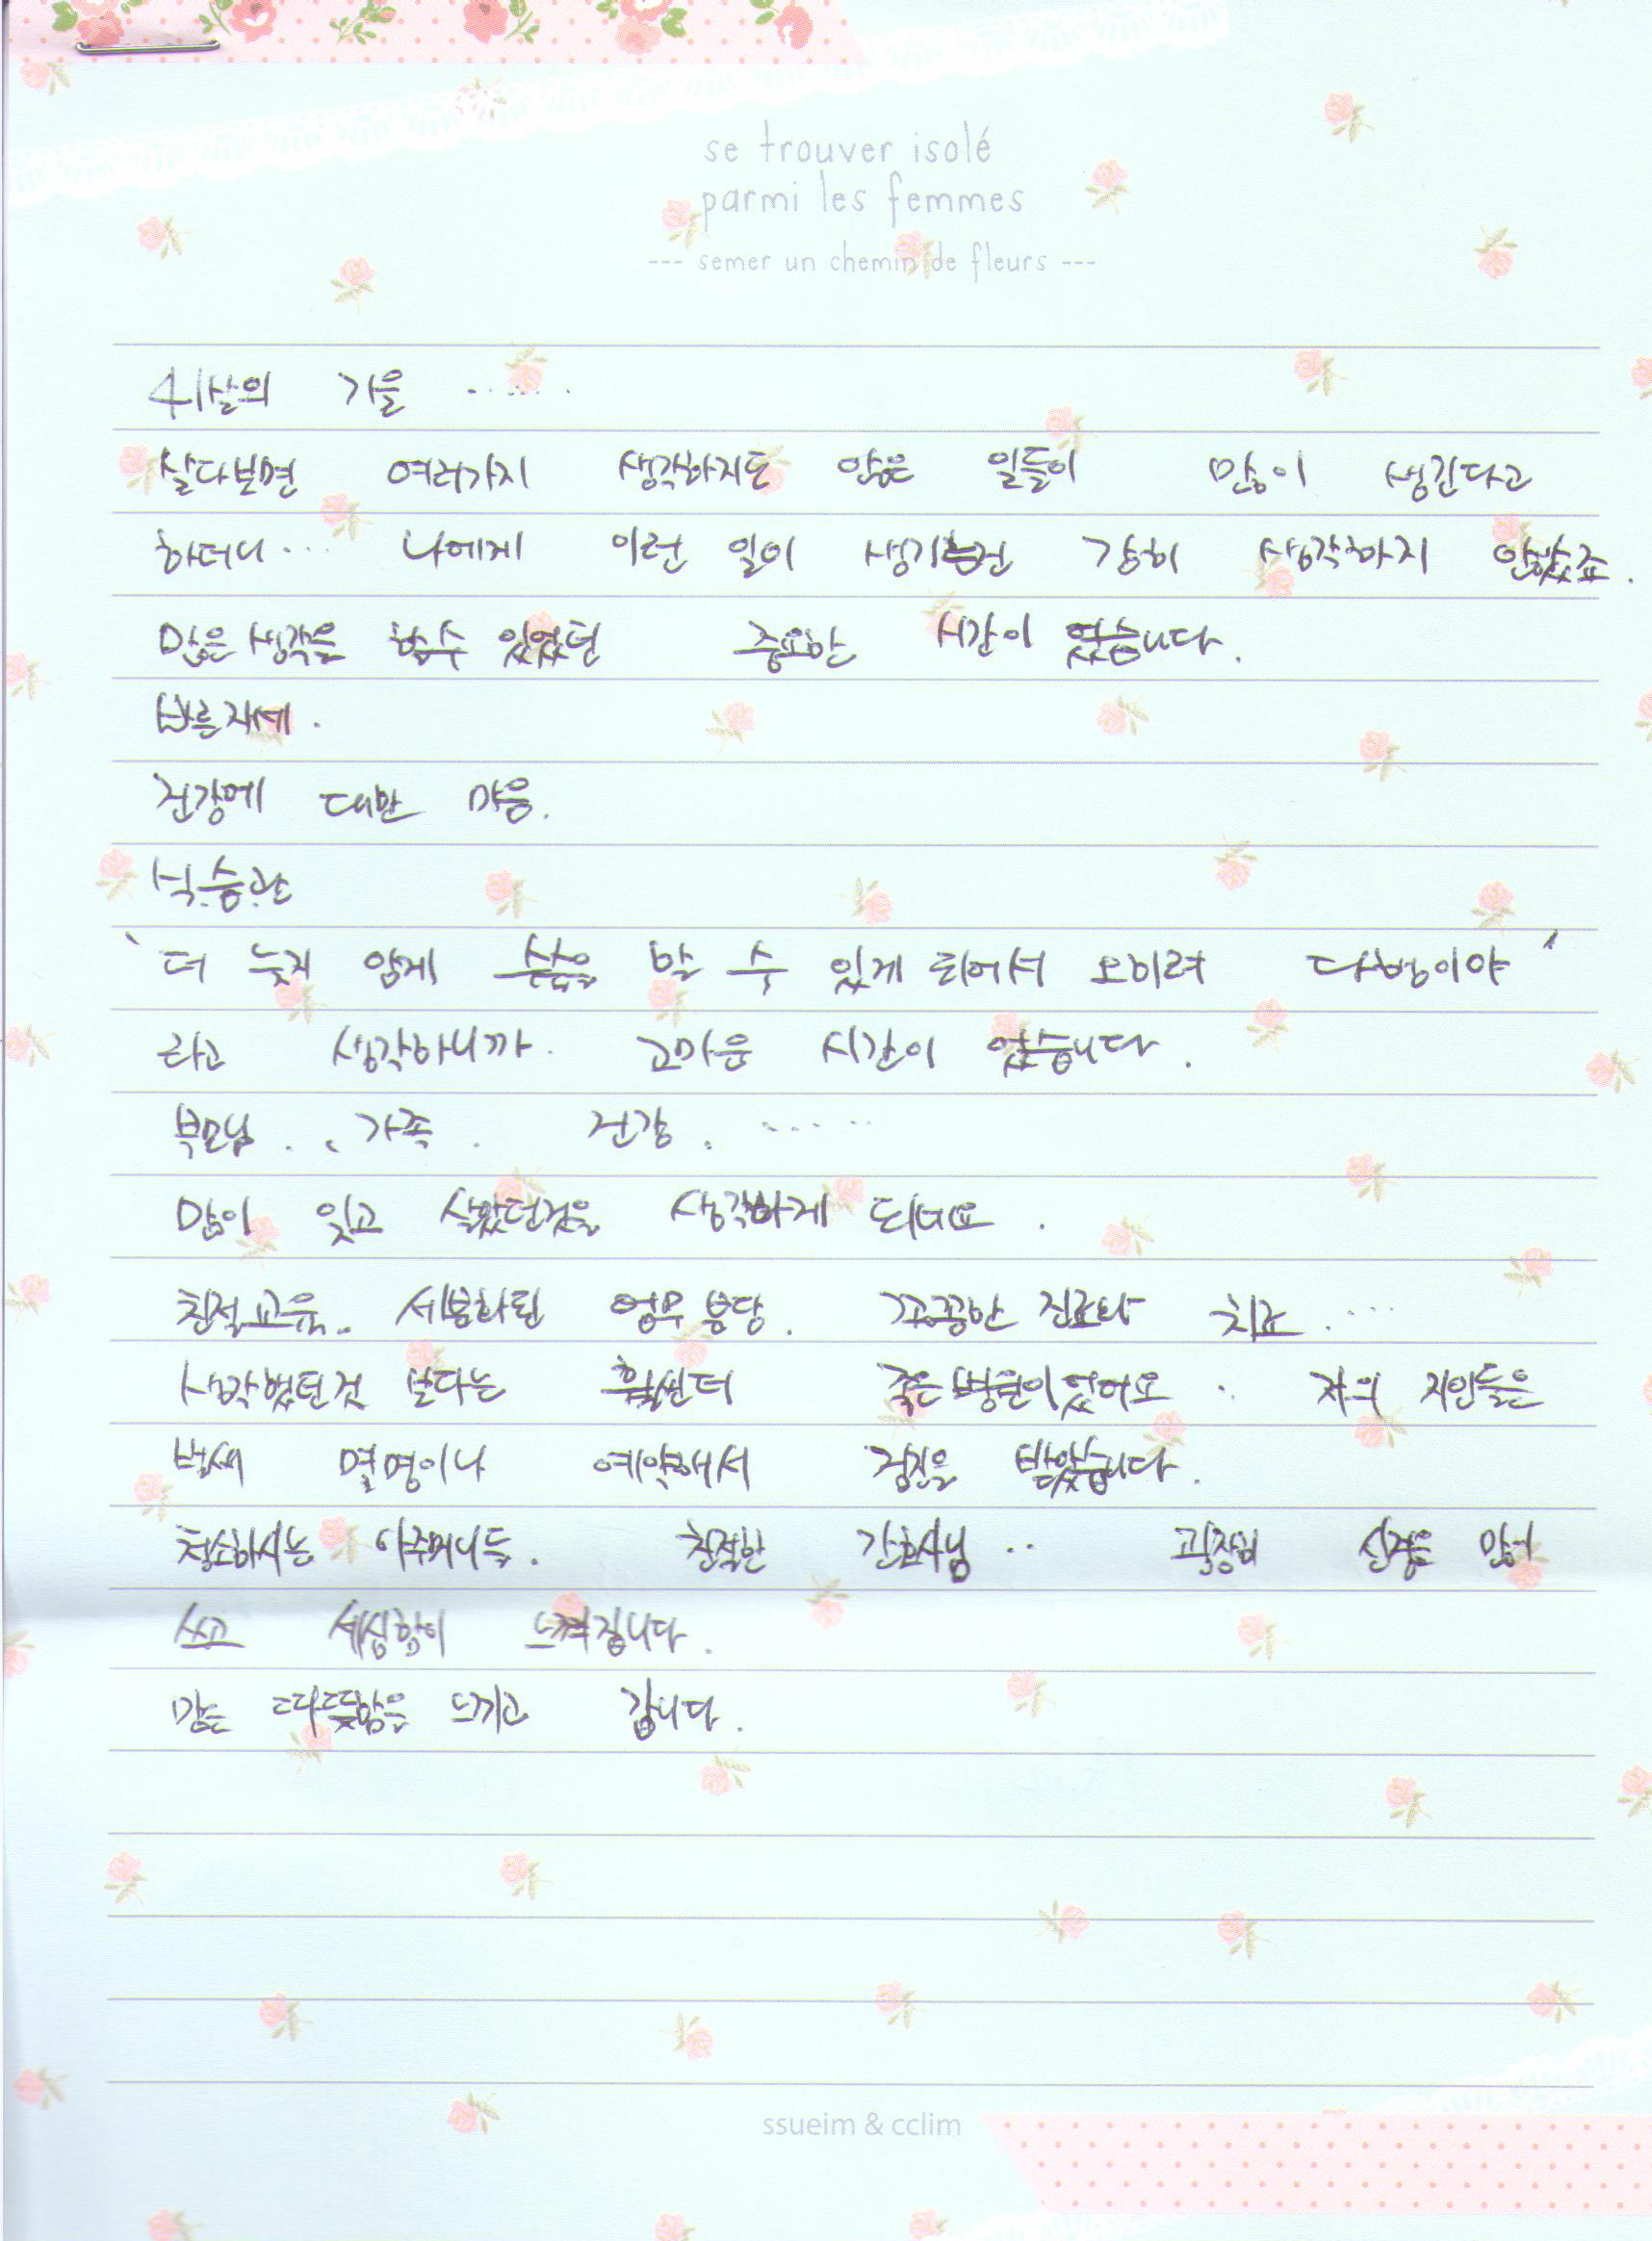 se trouver isolé
parmi les femmes
--- semer un chemin de fleurs ---
41살의 가을 ......
살다보면 여러가지 생각하지도 않은 일들이 많이 생긴다고
하더니... 나에게 이런 일이 생기는건 감히 생각하지 안했죠.
많은 생각을 할수 있었던 중요한 시간이 였습니다.
바른자세.
건강에 대한 마음.
식.습.관
'더 늦지 않게 수술을 할 수 있게 되어서 오히려 다행이야'
라고 생각하니까. 고마운 시간이 었습니다.
부모님.. 가족. 건강. .....
많이 잊고 살았던것을 생각하게 되네요.
친절교육.. 세분화된 업무 분담. 꼼꼼한 진료와 치료...
생각했던것 보다는 훨씬더 좋은병원이었어요.. 저의 지인들은
벌써 몇명이나 예약해서 검진을 받았습니다.
청소하시는 아주머니들. 친절한 간호사님.. 굉장히 신경을 많이
쓰고 세심함이 느껴집니다.
많은 따뜻함을 느끼고 갑니다.
ssueim & cclim